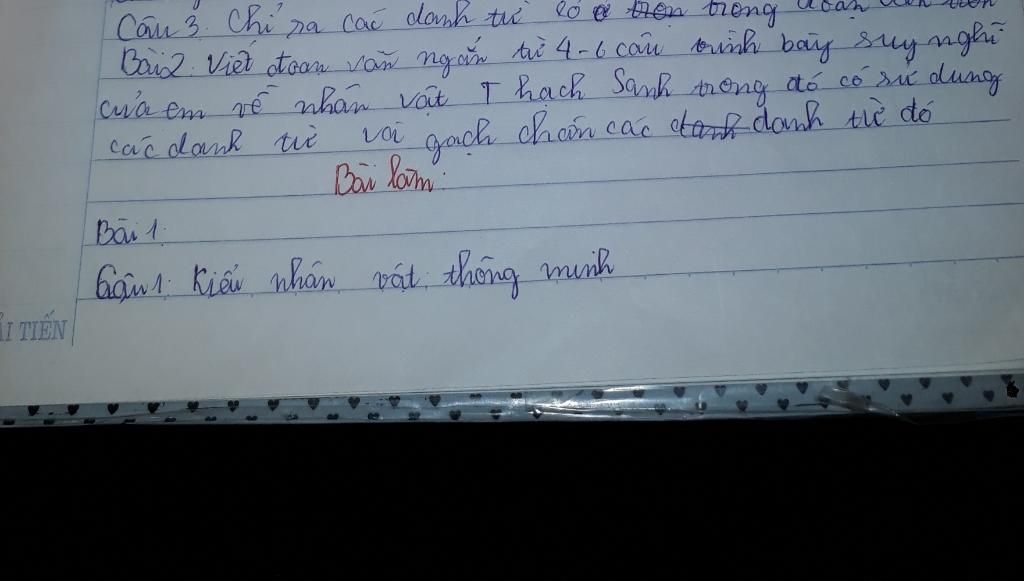 Câu 3. Chỉ ra các danh từ có trong đoạn văn trên
Bài 2. Viết đoạn văn ngắn từ 4-6 câu trình bày suy nghĩ
của em về nhân vật Thạch Sanh trong đó có sử dung
các danh từ và gạch chân các danh từ đó
Bài làm:
Bài 1:
Câu 1: Kiểu nhân vật: thông minh
ẢI TIẾN